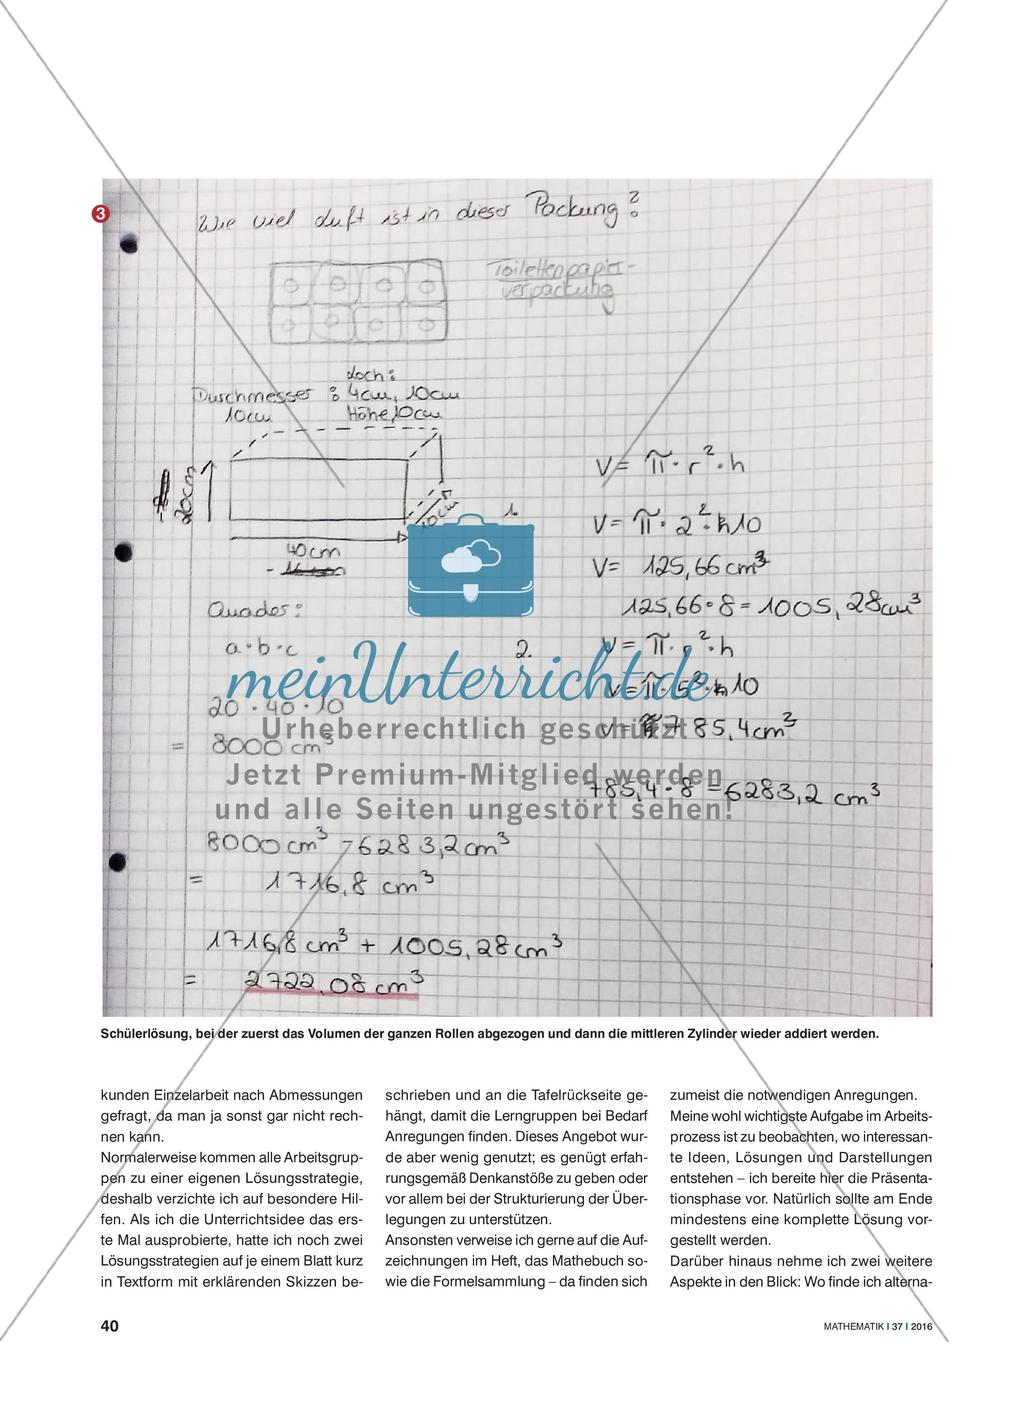 3
Wie viel Luft ist in dieser Packung?
Toilettenpapier-
verpackung
Loch:
Durchmesser : 4cm, 10cm
10cm Höhe 10cm
20cm
10cm
40cm
Quader:
a · b · c
20 · 40 · 10
= 8000 cm³
8000 cm³ - 6283,2 cm³
= 1716,8 cm³
1716,8 cm³ + 1005,28 cm³
= 2722,08 cm³
V= π · r² · h
1. V= π · 2² · 10
V= 125,66 cm³
125,66 · 8 = 1005,28 cm³
2. V= π · r² · h
V= π · 5² · 10
V= 785,4 cm³
785,4 · 8 = 6283,2 cm³
meinUnterricht.de
Urheberrechtlich geschützt
Jetzt Premium-Mitglied werden
und alle Seiten ungestört sehen!
Schülerlösung, bei der zuerst das Volumen der ganzen Rollen abgezogen und dann die mittleren Zylinder wieder addiert werden.
kunden Einzelarbeit nach Abmessungen
gefragt, da man ja sonst gar nicht rech-
nen kann.
Normalerweise kommen alle Arbeitsgrup-
pen zu einer eigenen Lösungsstrategie,
deshalb verzichte ich auf besondere Hil-
fen. Als ich die Unterrichtsidee das ers-
te Mal ausprobierte, hatte ich noch zwei
Lösungsstrategien auf je einem Blatt kurz
in Textform mit erklärenden Skizzen be-
schrieben und an die Tafelrückseite ge-
hängt, damit die Lerngruppen bei Bedarf
Anregungen finden. Dieses Angebot wur-
de aber wenig genutzt; es genügt erfah-
rungsgemäß Denkanstöße zu geben oder
vor allem bei der Strukturierung der Über-
legungen zu unterstützen.
Ansonsten verweise ich gerne auf die Auf-
zeichnungen im Heft, das Mathebuch so-
wie die Formelsammlung – da finden sich
zumeist die notwendigen Anregungen.
Meine wohl wichtigste Aufgabe im Arbeits-
prozess ist zu beobachten, wo interessan-
te Ideen, Lösungen und Darstellungen
entstehen – ich bereite hier die Präsenta-
tionsphase vor. Natürlich sollte am Ende
mindestens eine komplette Lösung vor-
gestellt werden.
Darüber hinaus nehme ich zwei weitere
Aspekte in den Blick: Wo finde ich alterna-
40
MATHEMATIK I 37 I 2016